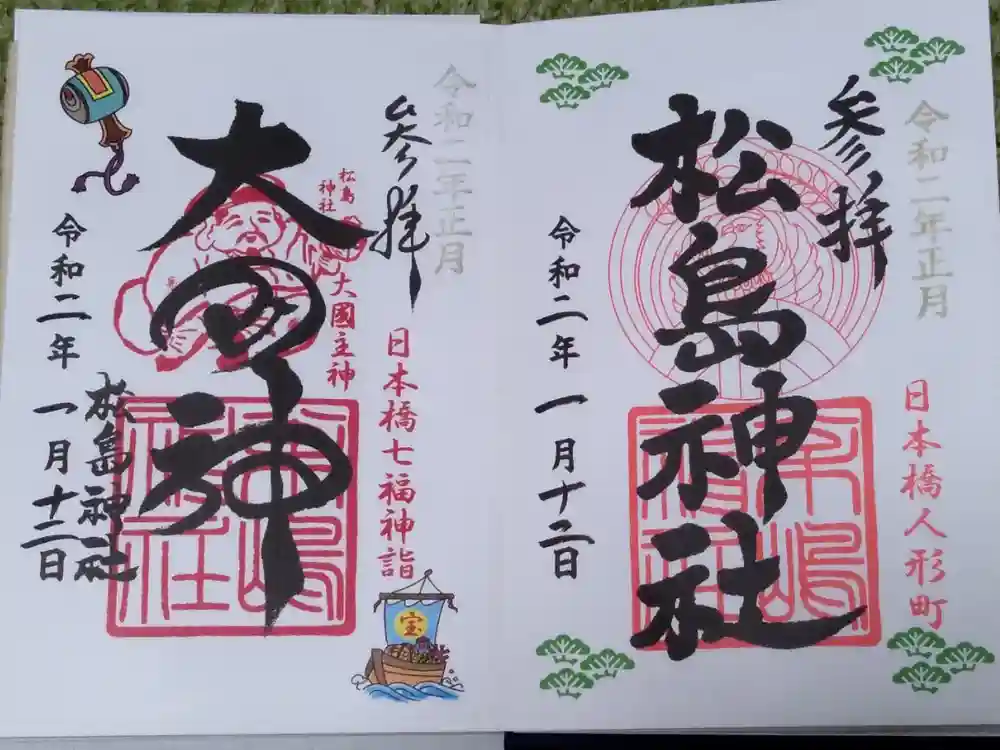 令和二年正月
参拝
日本橋人形町
松島神社
令和二年一月十二日
令和二年正月
参拝
日本橋七福神詣
松島
神社
大國主神
大国神
松島神社
令和二年一月十二日
宝